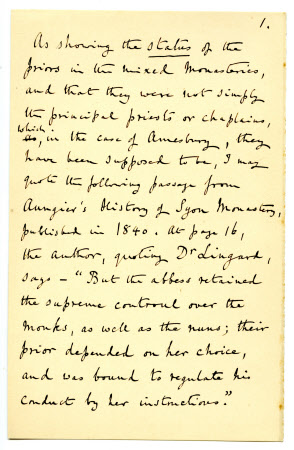 1.
As showing the status of the
priors in the mixed Monasteries,
and that they were not simply
the principal priests or chaplains,
which, in the case of Amesbury, they
have been supposed to be, I may
quote the following passage from
Aungier's History of Syon Monastery,
published in 1840. At page 16,
the author, quoting Dr Lingard,
says - "But the abbess retained
the supreme controul over the
monks, as well as the nuns; their
prior depended on her choice,
and was bound to regulate his
conduct by her instructions."